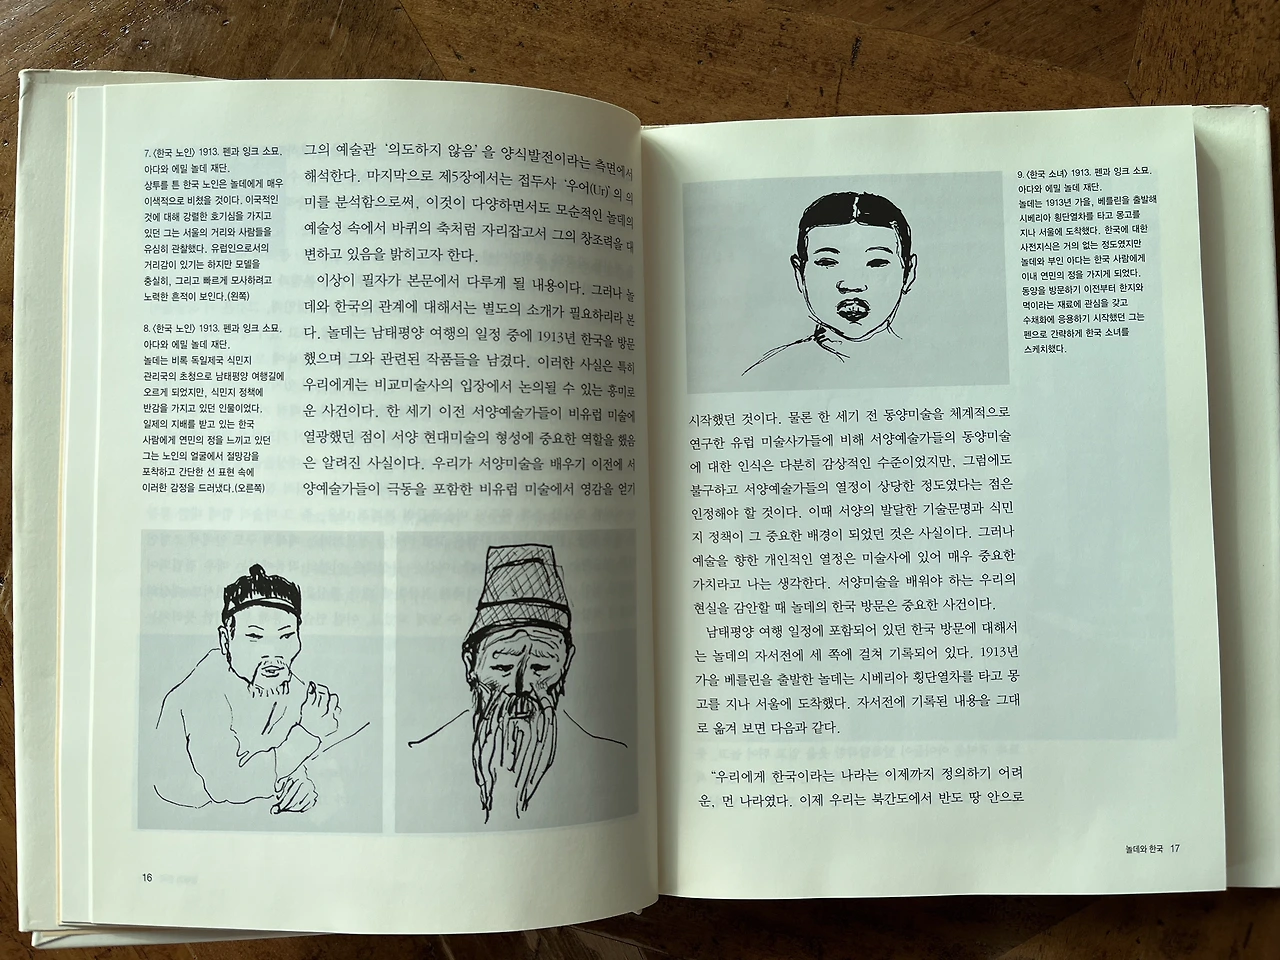 7. 〈한국 노인〉 1913. 펜과 잉크 소묘.
아다와 에밀 놀데 재단.
상투를 튼 한국 노인은 놀데에게 매우
이색적으로 비쳤을 것이다. 이국적인
것에 대해 강렬한 호기심을 가지고
있던 그는 서울의 거리와 사람들을
유심히 관찰했다. 유럽인으로서의
거리감이 있기는 하지만 모델을
충실히, 그리고 빠르게 모사하려고
노력한 흔적이 보인다.(왼쪽)
8. 〈한국 노인〉 1913. 펜과 잉크 소묘.
아다와 에밀 놀데 재단.
놀데는 비록 독일제국 식민지
관리국의 초청으로 남태평양 여행길에
오르게 되었지만, 식민지 정책에
반감을 가지고 있던 인물이었다.
일제의 지배를 받고 있는 한국
사람에게 연민의 정을 느끼고 있던
그는 노인의 얼굴에서 절망감을
포착하고 간단한 선 표현 속에
이러한 감정을 드러냈다.(오른쪽)
그의 예술관 ‘의도하지 않음’을 양식발전이라는 측면에서
해석한다. 마지막으로 제5장에서는 접두사 ‘우어(Ur)’의 의
미를 분석함으로써, 이것이 다양하면서도 모순적인 놀데의
예술성 속에서 바퀴의 축처럼 자리잡고서 그의 창조력을 대
변하고 있음을 밝히고자 한다.
이상이 필자가 본문에서 다루게 될 내용이다. 그러나 놀
데와 한국의 관계에 대해서는 별도의 소개가 필요하리라 본
다. 놀데는 남태평양 여행의 일정 중에 1913년 한국을 방문
했으며 그와 관련된 작품들을 남겼다. 이러한 사실은 특히
우리에게는 비교미술사의 입장에서 논의될 수 있는 흥미로
운 사건이다. 한 세기 이전 서양예술가들이 비유럽 미술에
열광했던 점이 서양 현대미술의 형성에 중요한 역할을 했음
은 알려진 사실이다. 우리가 서양미술을 배우기 이전에 서
양예술가들이 극동을 포함한 비유럽 미술에서 영감을 얻기
16
9. 〈한국 소녀〉 1913. 펜과 잉크 소묘.
아다와 에밀 놀데 재단.
놀데는 1913년 가을, 베를린을 출발해
시베리아 횡단열차를 타고 몽고를
지나 서울에 도착했다. 한국에 대한
사전지식은 거의 없는 정도였지만
놀데와 부인 아다는 한국 사람에게
이내 연민의 정을 가지게 되었다.
동양을 방문하기 이전부터 한지와
먹이라는 재료에 관심을 갖고
수채화에 응용하기 시작했던 그는
펜으로 간략하게 한국 소녀를
스케치했다.
시작했던 것이다. 물론 한 세기 전 동양미술을 체계적으로
연구한 유럽 미술사가들에 비해 서양예술가들의 동양미술
에 대한 인식은 다분히 감상적인 수준이었지만, 그럼에도
불구하고 서양예술가들의 열정이 상당한 정도였다는 점은
인정해야 할 것이다. 이때 서양의 발달한 기술문명과 식민
지 정책이 그 중요한 배경이 되었던 것은 사실이다. 그러나
예술을 향한 개인적인 열정은 미술사에 있어 매우 중요한
가치라고 나는 생각한다. 서양미술을 배워야 하는 우리의
현실을 감안할 때 놀데의 한국 방문은 중요한 사건이다.
남태평양 여행 일정에 포함되어 있던 한국 방문에 대해서
는 놀데의 자서전에 세 쪽에 걸쳐 기록되어 있다. 1913년
가을 베를린을 출발한 놀데는 시베리아 횡단열차를 타고 몽
고를 지나 서울에 도착했다. 자서전에 기록된 내용을 그대
로 옮겨 보면 다음과 같다.
“우리에게 한국이라는 나라는 이제까지 정의하기 어려
운, 먼 나라였다. 이제 우리는 북간도에서 반도 땅 안으로
놀데와 한국 17